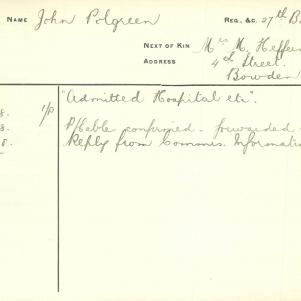 NAME John Polgreen REG. &C. 27th B
NEXT OF KIN Mrs M. Heffer
ADDRESS 4th Street
Bowden
8. 1/P "Admitted Hospital etc".
8. P/Cable confirmed - forwarded
8. Reply from Commdt. Informati